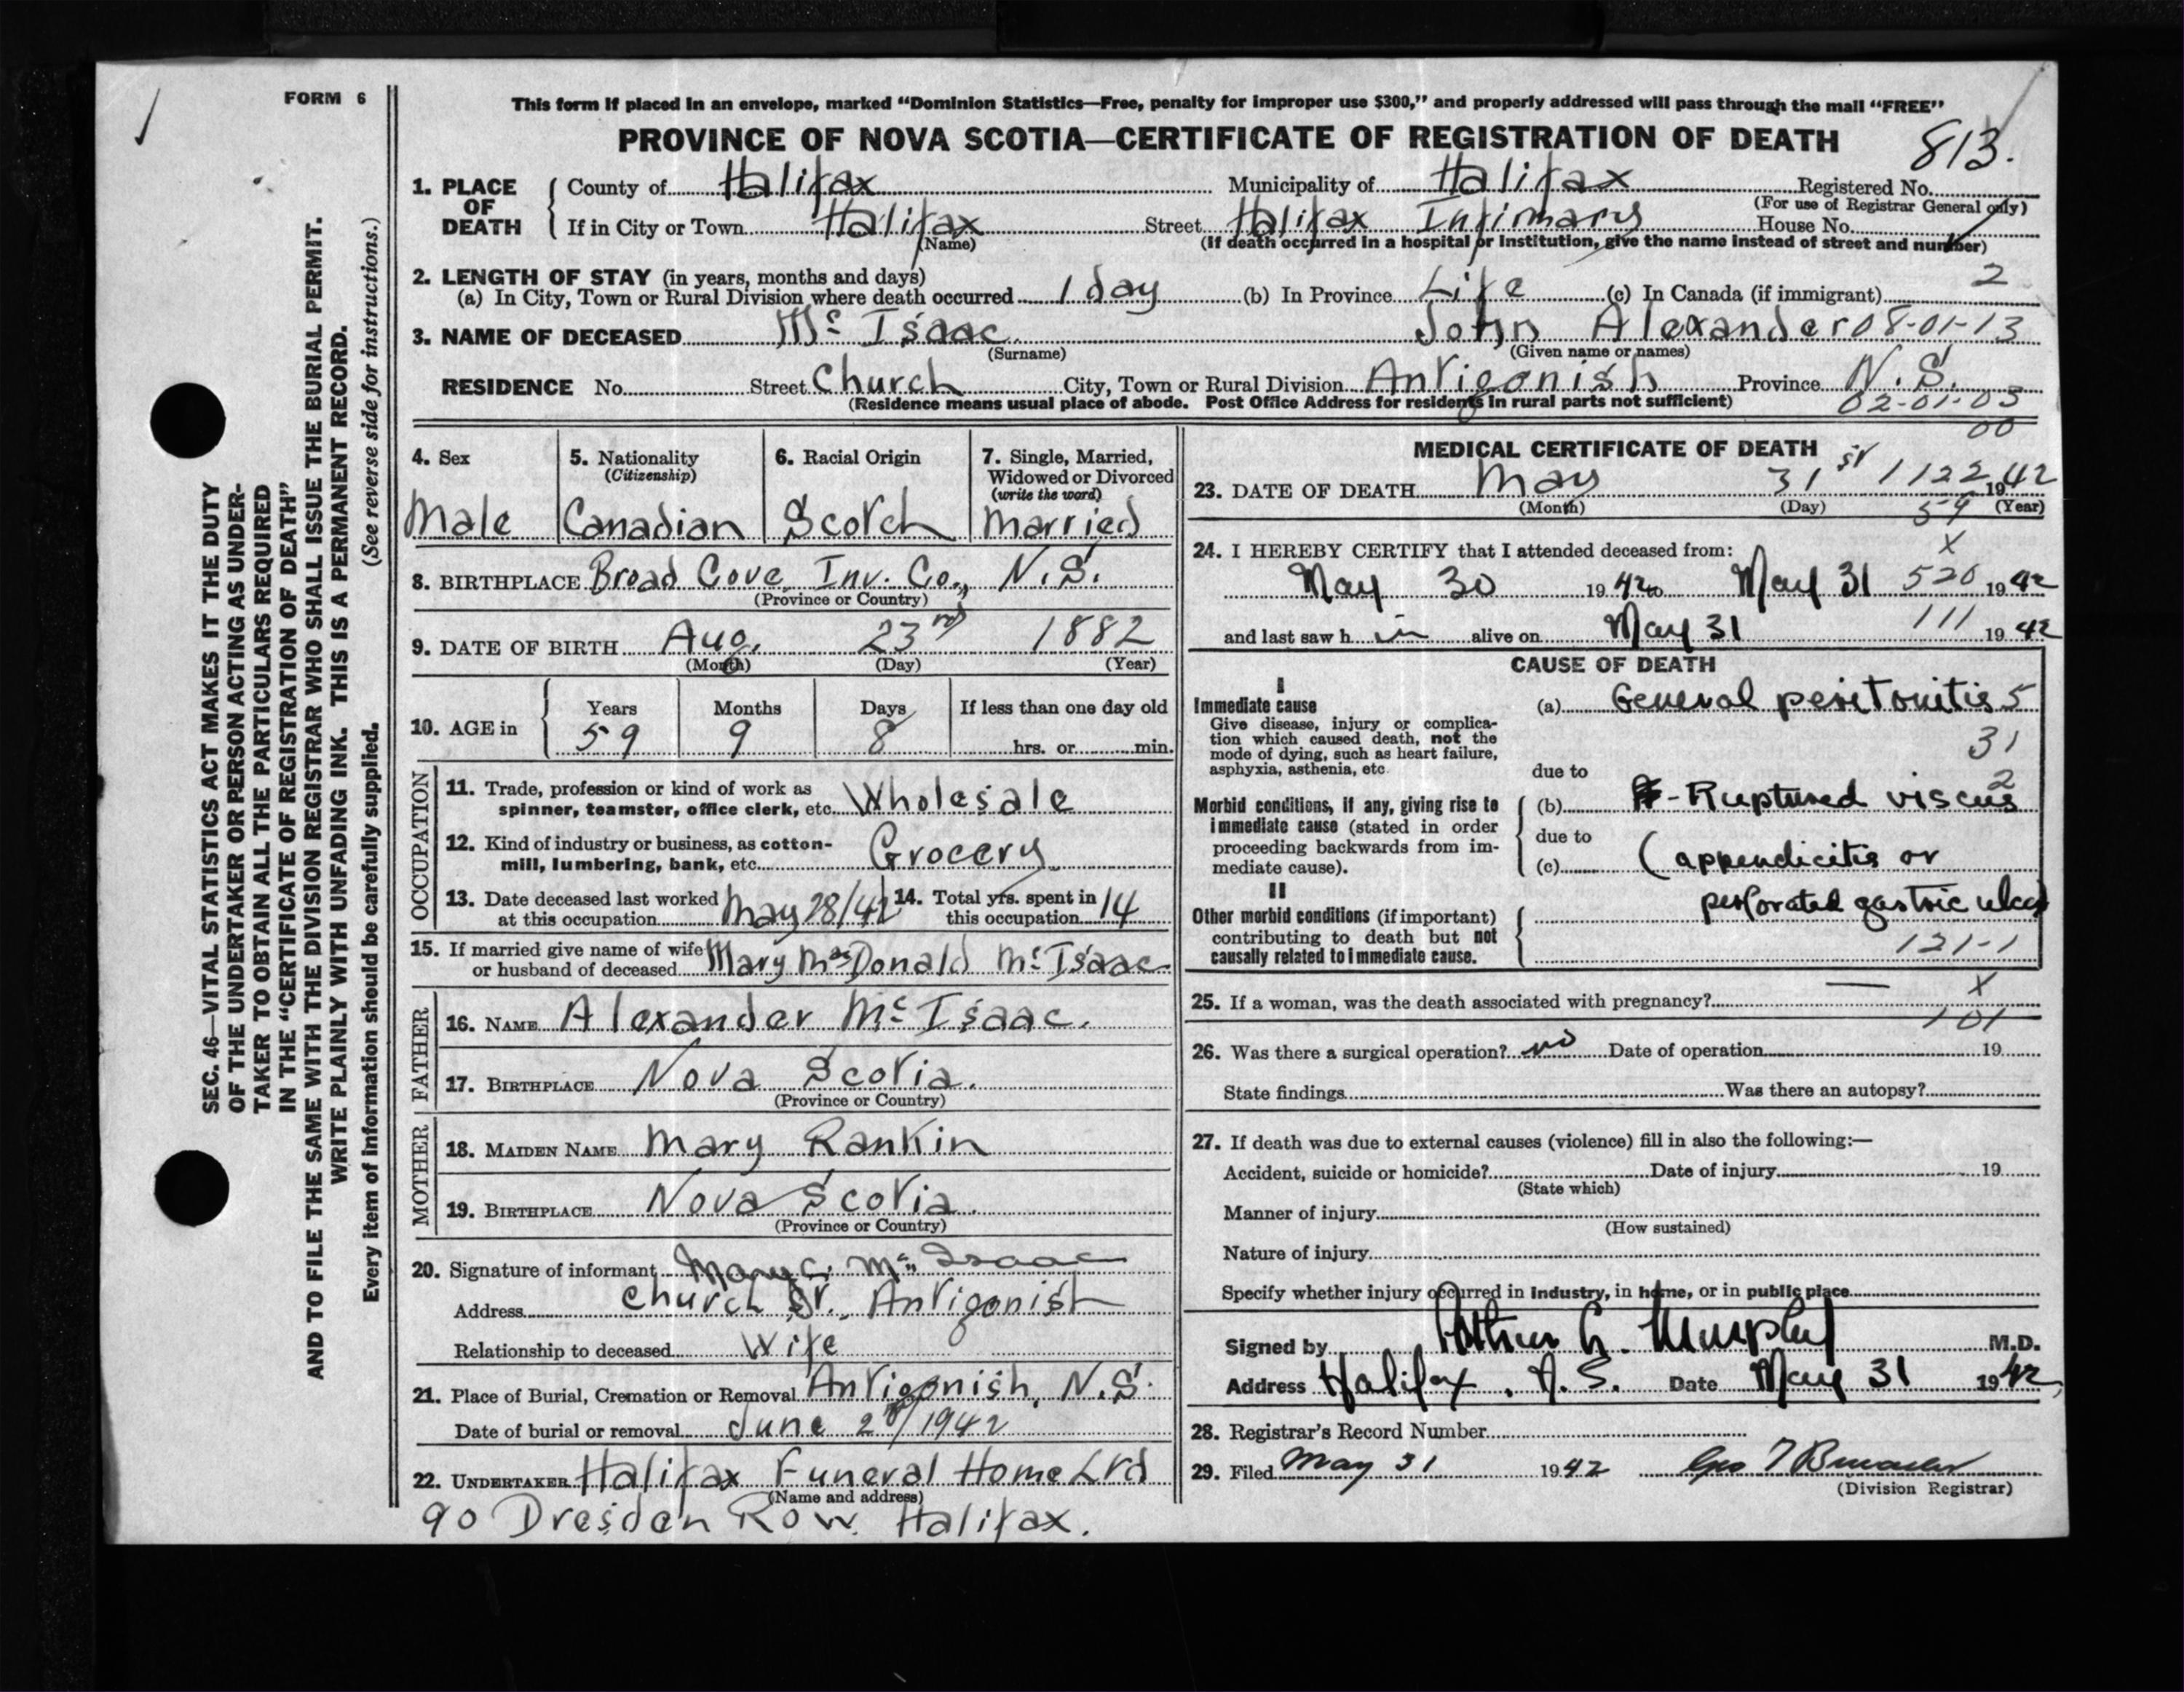 FORM 6
This form if placed in an envelope, marked “Dominion Statistics—Free, penalty for improper use $300,” and properly addressed will pass through the mail “FREE”
PROVINCE OF NOVA SCOTIA—CERTIFICATE OF REGISTRATION OF DEATH
813.
1. PLACE OF DEATH
County of Halifax Municipality of Halifax Registered No.
(For use of Registrar General only)
If in City or Town Halifax Street Halifax Infirmary House No.
(Name) (If death occurred in a hospital or institution, give the name instead of street and number)
2. LENGTH OF STAY (in years, months and days) 2
(a) In City, Town or Rural Division where death occurred 1 day (b) In Province Life (c) In Canada (if immigrant)
3. NAME OF DECEASED Mc Isaac. John Alexander 08-01-13
(Surname) (Given name or names)
RESIDENCE No. Street Church City, Town or Rural Division Antigonish Province N.S.
(Residence means usual place of abode. Post Office Address for residents in rural parts not sufficient) 02-01-03
00
4. Sex
Male
5. Nationality
(Citizenship)
Canadian
6. Racial Origin
Scotch
7. Single, Married,
Widowed or Divorced
(write the word)
Married
8. BIRTHPLACE Broad Cove, Inv. Co., N.S.
(Province or Country)
9. DATE OF BIRTH Aug. 23rd 1882
(Month) (Day) (Year)
10. AGE in
Years Months Days If less than one day old
59 9 8 hrs. or min.
OCCUPATION
11. Trade, profession or kind of work as
spinner, teamster, office clerk, etc. Wholesale
12. Kind of industry or business, as cotton-
mill, lumbering, bank, etc. Grocery
13. Date deceased last worked
at this occupation May 28/42
14. Total yrs. spent in
this occupation 14
15. If married give name of wife
or husband of deceased Mary MacDonald Mc Isaac
FATHER
16. NAME Alexander Mc Isaac.
17. BIRTHPLACE Nova Scotia.
(Province or Country)
MOTHER
18. MAIDEN NAME Mary Rankin
19. BIRTHPLACE Nova Scotia.
(Province or Country)
20. Signature of informant Mary C. Mc Isaac
Address Church St. Antigonish
Relationship to deceased Wife
21. Place of Burial, Cremation or Removal Antigonish, N.S.
Date of burial or removal June 2nd/1942
22. UNDERTAKER Halifax Funeral Home Ltd
(Name and address)
90 Dresden Row. Halifax.
MEDICAL CERTIFICATE OF DEATH
23. DATE OF DEATH May 31st 1122 1942
(Month) (Day) 59 (Year)
24. I HEREBY CERTIFY that I attended deceased from: X
May 30 1942 to May 31 520 1942
and last saw h im alive on May 31 111 1942
CAUSE OF DEATH
I
Immediate cause
Give disease, injury or complica-
tion which caused death, not the
mode of dying, such as heart failure,
asphyxia, asthenia, etc.
(a) General peritonitis 5
31
due to
2
Morbid conditions, if any, giving rise to
immediate cause (stated in order
proceeding backwards from im-
mediate cause).
(b) - Ruptured viscus
due to
(c) (appendicitis or
perforated gastric ulcer)
II
Other morbid conditions (if important)
contributing to death but not
causally related to immediate cause.
121-1
25. If a woman, was the death associated with pregnancy? — X
101
26. Was there a surgical operation? no Date of operation 19
State findings Was there an autopsy?
27. If death was due to external causes (violence) fill in also the following:—
Accident, suicide or homicide? Date of injury 19
(State which)
Manner of injury
(How sustained)
Nature of injury
Specify whether injury occurred in industry, in home, or in public place
Signed by Arthur G. Murphy M.D.
Address Halifax, N.S. Date May 31 1942
28. Registrar's Record Number
29. Filed May 31 1942 Geo
(Division Registrar)
SEC. 46—VITAL STATISTICS ACT MAKES IT THE DUTY
OF THE UNDERTAKER OR PERSON ACTING AS UNDER-
TAKER TO OBTAIN ALL THE PARTICULARS REQUIRED
IN THE “CERTIFICATE OF REGISTRATION OF DEATH”
AND TO FILE THE SAME WITH THE DIVISION REGISTRAR WHO SHALL ISSUE THE BURIAL PERMIT.
WRITE PLAINLY WITH UNFADING INK. THIS IS A PERMANENT RECORD.
Every item of information should be carefully supplied. (See reverse side for instructions.)